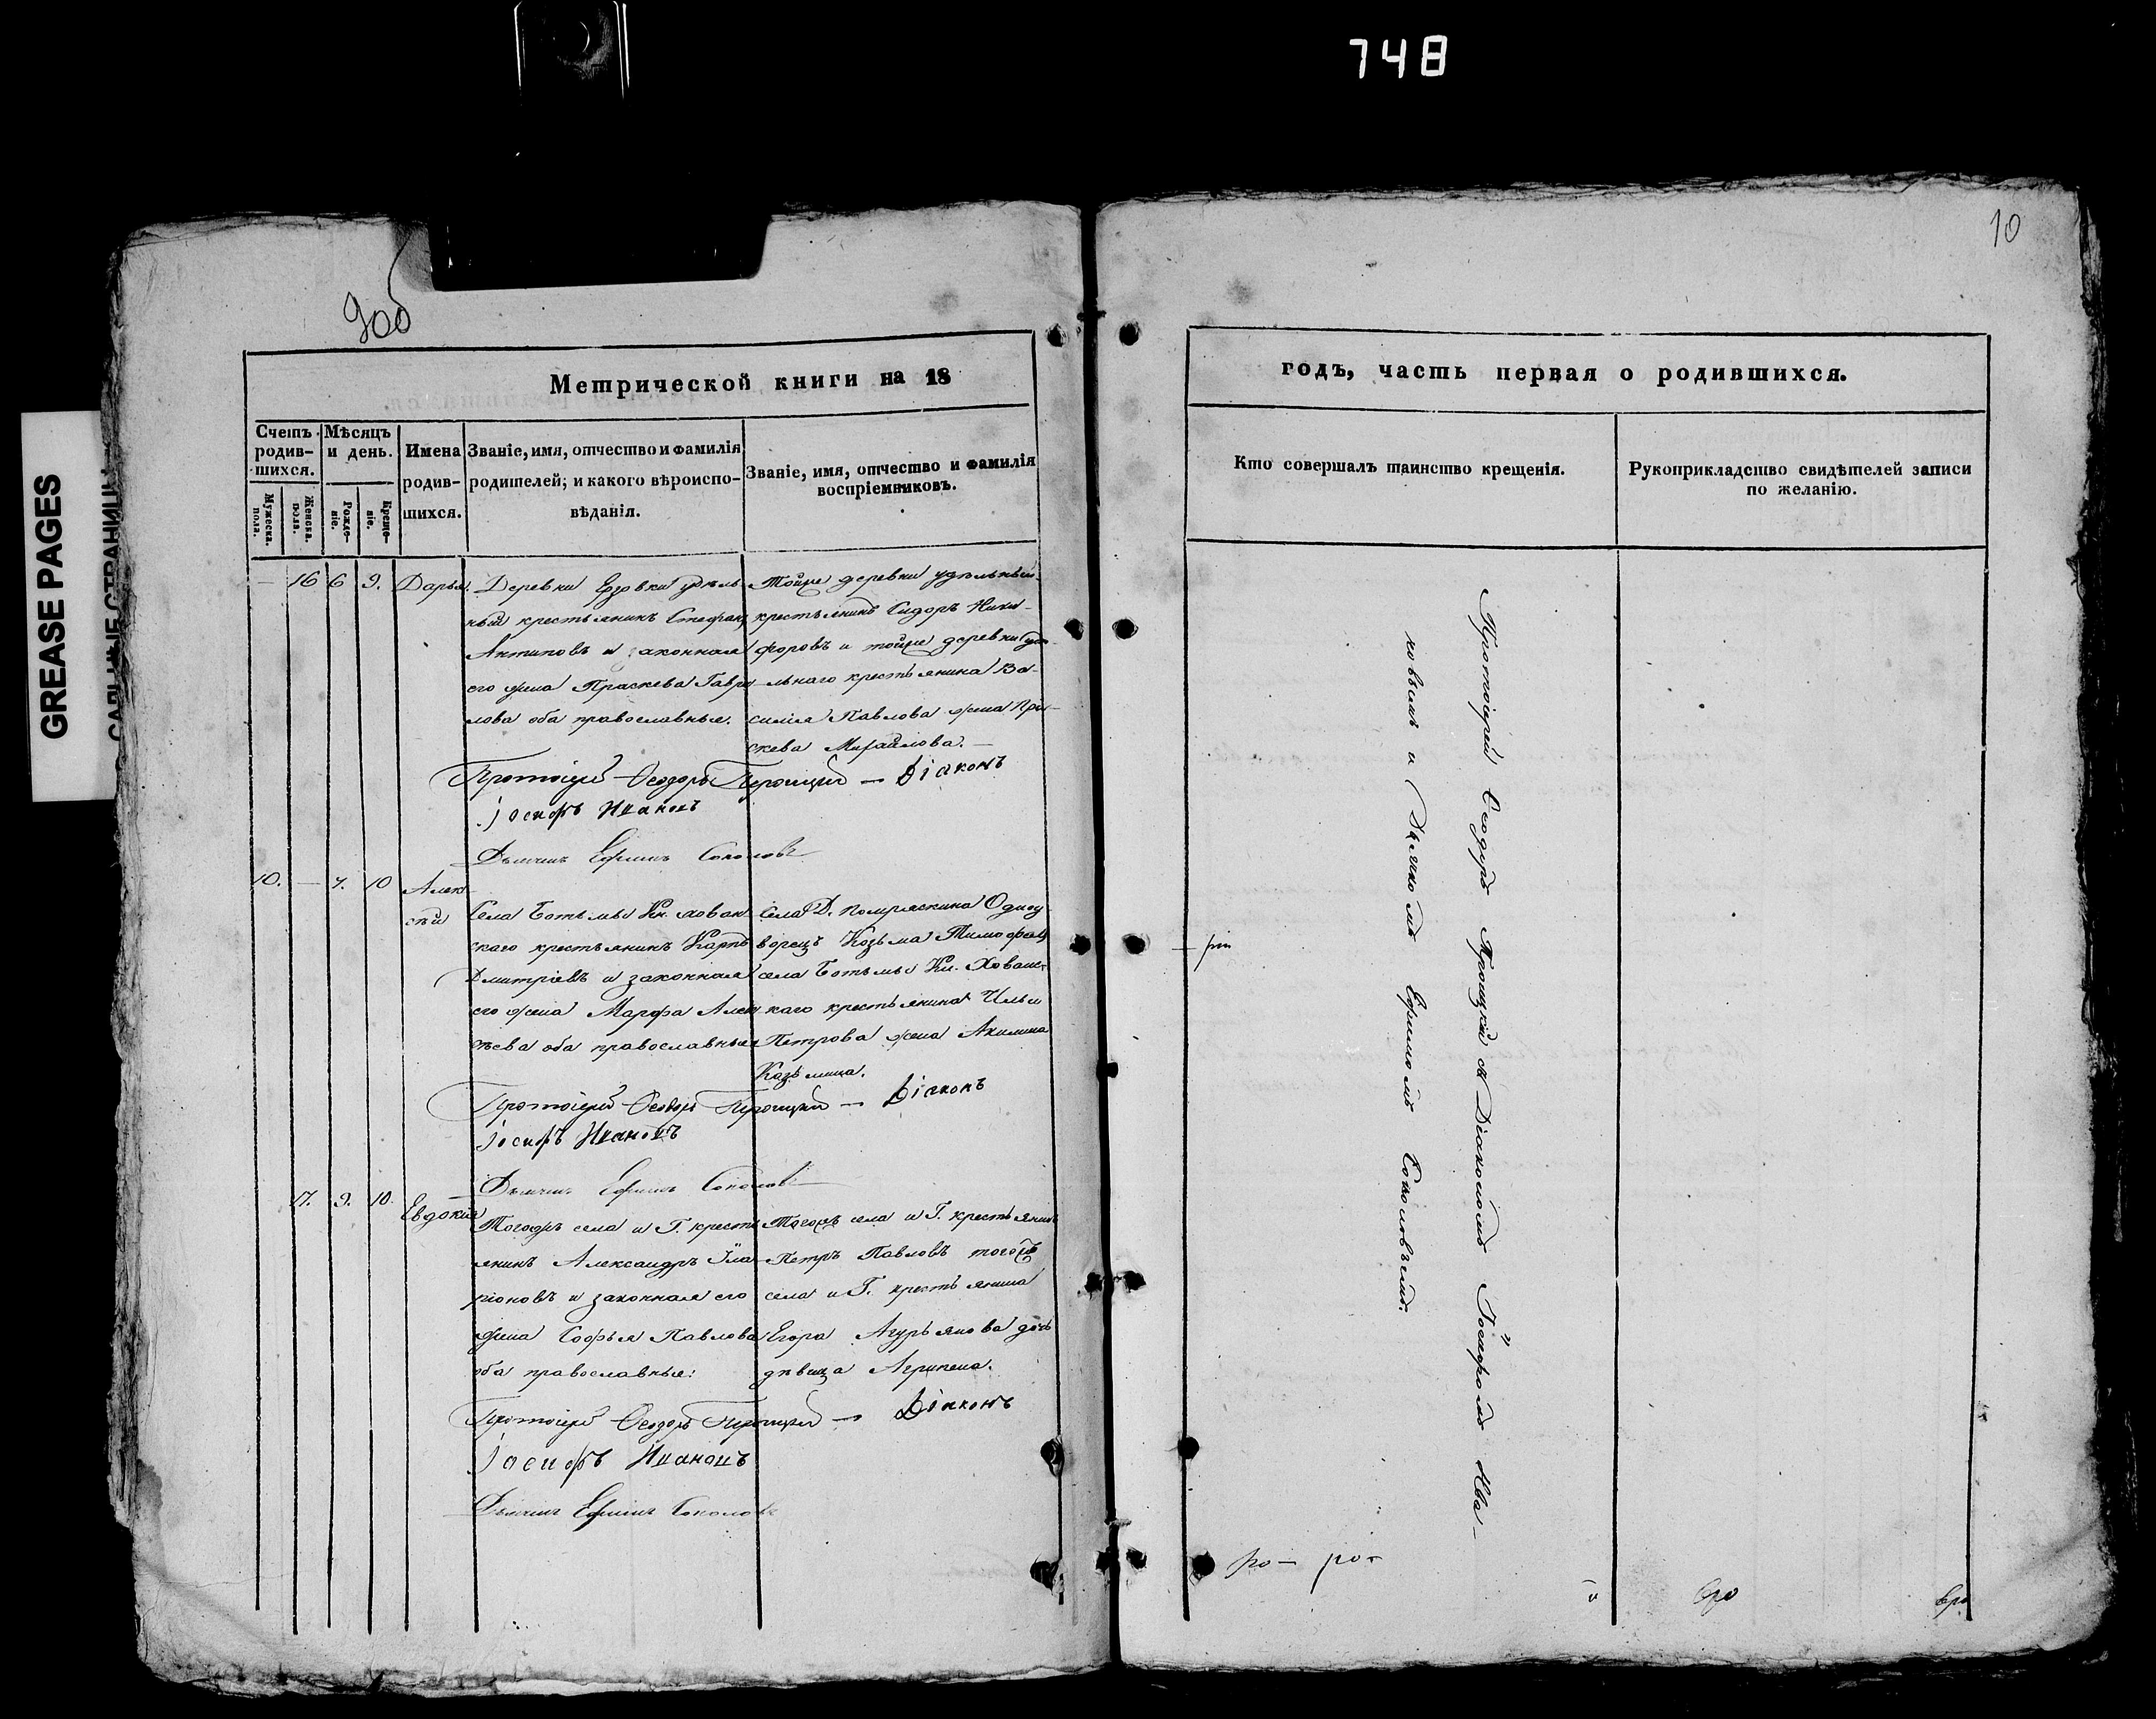 748
GREASE PAGES
10
9об
Метрической книги на 18
годъ, часть первая о родившихся.
Счетъ родив-шихся.
Мужеска пола.
Женска. пола.
Мѣсяцъ и день.
Рожде-ніе.
Креще-ніе.
Имена родив-шихся.
Званіе, имя, отчество и фамилія
родителей; и какого вѣроиспо-
вѣданія.
Званіе, имя, отчество и фамилія
воспріемниковъ.
Кто совершалъ таинство крещенія.
Рукоприкладство свидѣтелей записи
по желанію.
— 16 6 9. Дарья.
Деревни Ерзовки удѣль-
ный крестьянинъ Стефанъ
Антиповъ и законная
его жена Праскева Гаври-
лова оба православные.
Тойже деревни удѣльный
крестьянинъ Сидоръ Ники-
форовъ и тойже деревни удѣ-
льнаго крестьянина Ва-
силія Павлова жена Пра-
скева Михайлова.—
Протоіерей Ѳеодоръ Троицкій — Діаконъ
Іосифъ Ивановъ
Дьячекъ Ефимъ Соколовъ
10. — 7. 10 Алек-
сѣй
Села Ботьмы Кн. Хован-
скаго крестьянинъ Карпъ
Дмитріевъ и законная
его жена Марфа Алек-
сѣева оба православные
Села Д. Помряскина Одно-
ворецъ Козьма Тимофеевъ
села Ботьмы Кн. Хованс-
каго крестьянина Ильи
Петрова жена Акилина
Козьмина.
Протоіерей Ѳеодоръ Троицкій — Діаконъ
Іосифъ Ивановъ
Дьячекъ Ефимъ Соколовъ
17. 9. 10. Евдокія
Тогожъ села и Г. кресть-
янинъ Александръ Ила-
ріоновъ и законная его
жена Софья Павлова
оба православные:
Тогожъ села и Г. крестьянинъ
Петръ Павловъ тогожъ
села и Г. крестьянина
Егора Агурьянова дочь
дѣвица Агрипена.
Протоіерей Ѳеодоръ Троицкій — Діаконъ
Іосифъ Ивановъ
Дьячекъ Ефимъ Соколовъ
Протоіерей Ѳеодоръ Троицкій съ Діакономъ Іосифомъ Ива-
новымъ и Дьячкомъ Ефимомъ Соколовымъ.